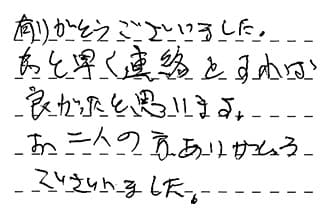 有りがとうございました。
もっと早く連絡をすれば
良かったと思います。
お二人の方ありがとう
ございました。